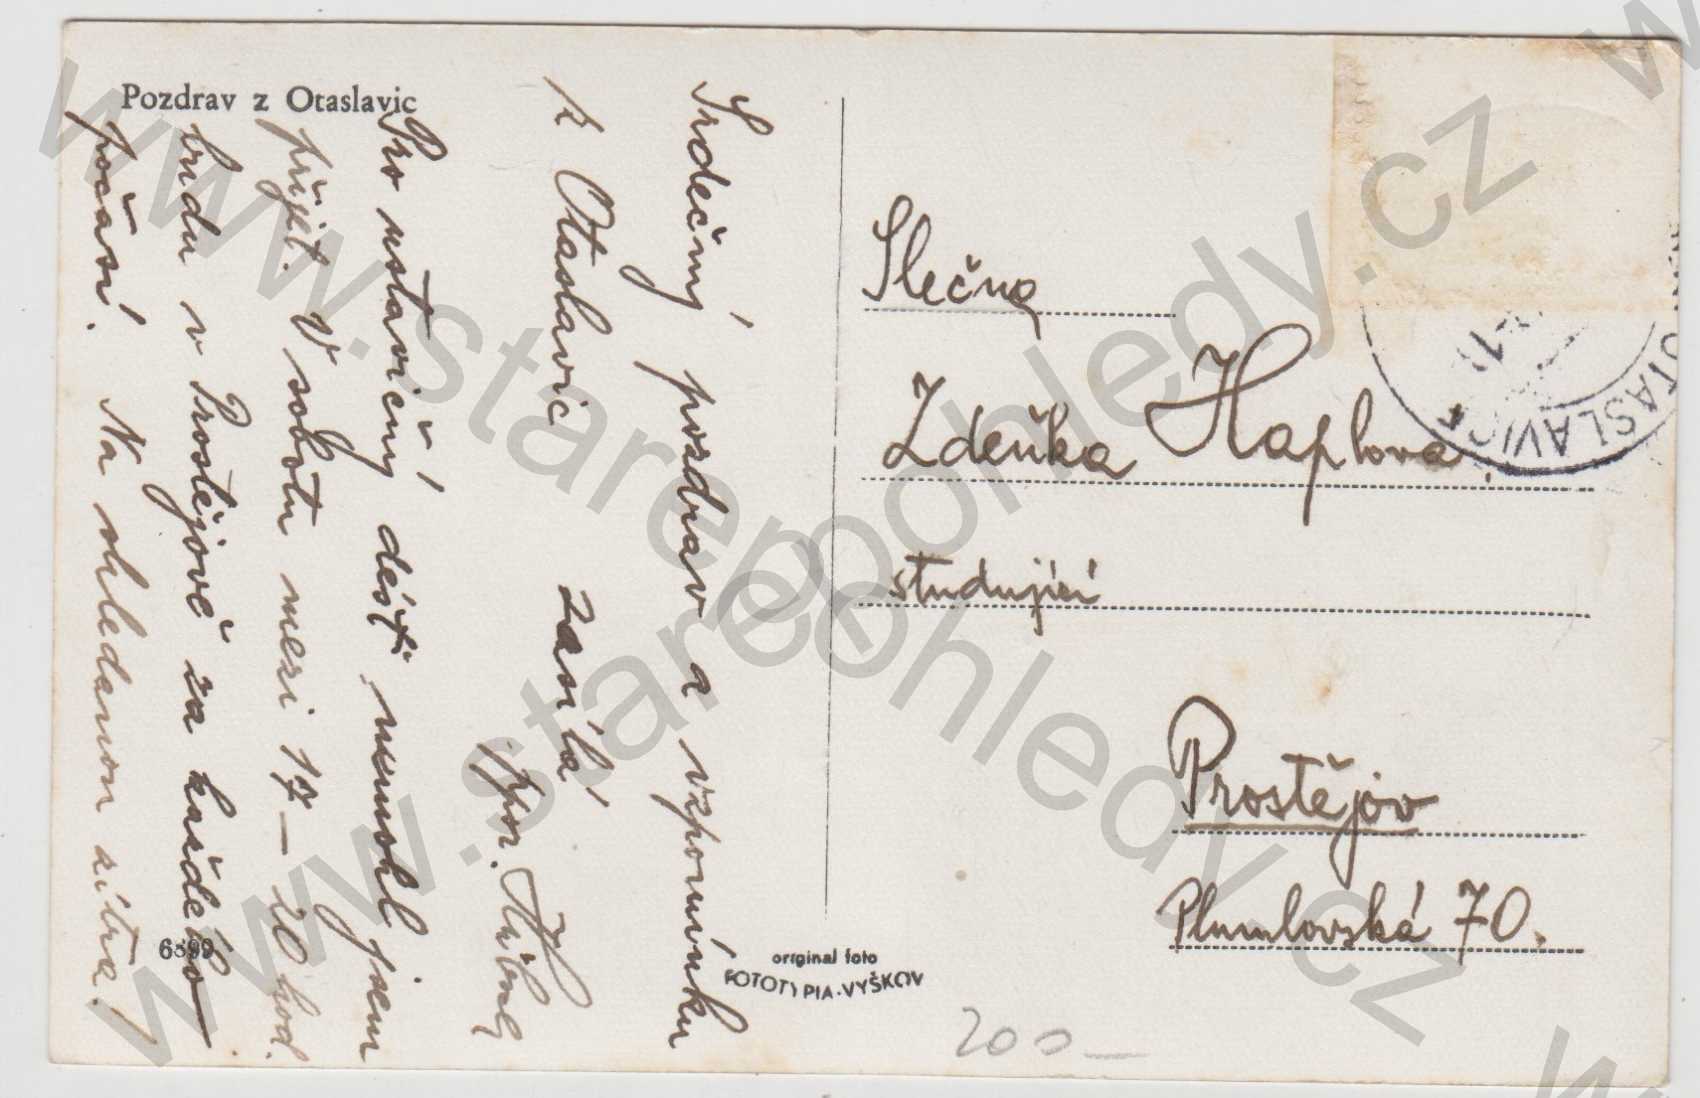 Pozdrav z Otaslavic
Srdečný pozdrav a vzpomínku
z Otaslavic zasílá
Pro ustavičný déšť nemohl jsem
přijet. V sobotu mezi 17–20 hod.
budu v Prostějově za každého
počasí. Na shledanou zítra!
Slečna
Zdeňka Haplova
studující
Prostějov
Plumlovská 70.
6399
original foto
FOTOTYPIA-VYŠKOV
OTASLAVICE
200—
www.starepohledy.cz
www.starepohledy.cz